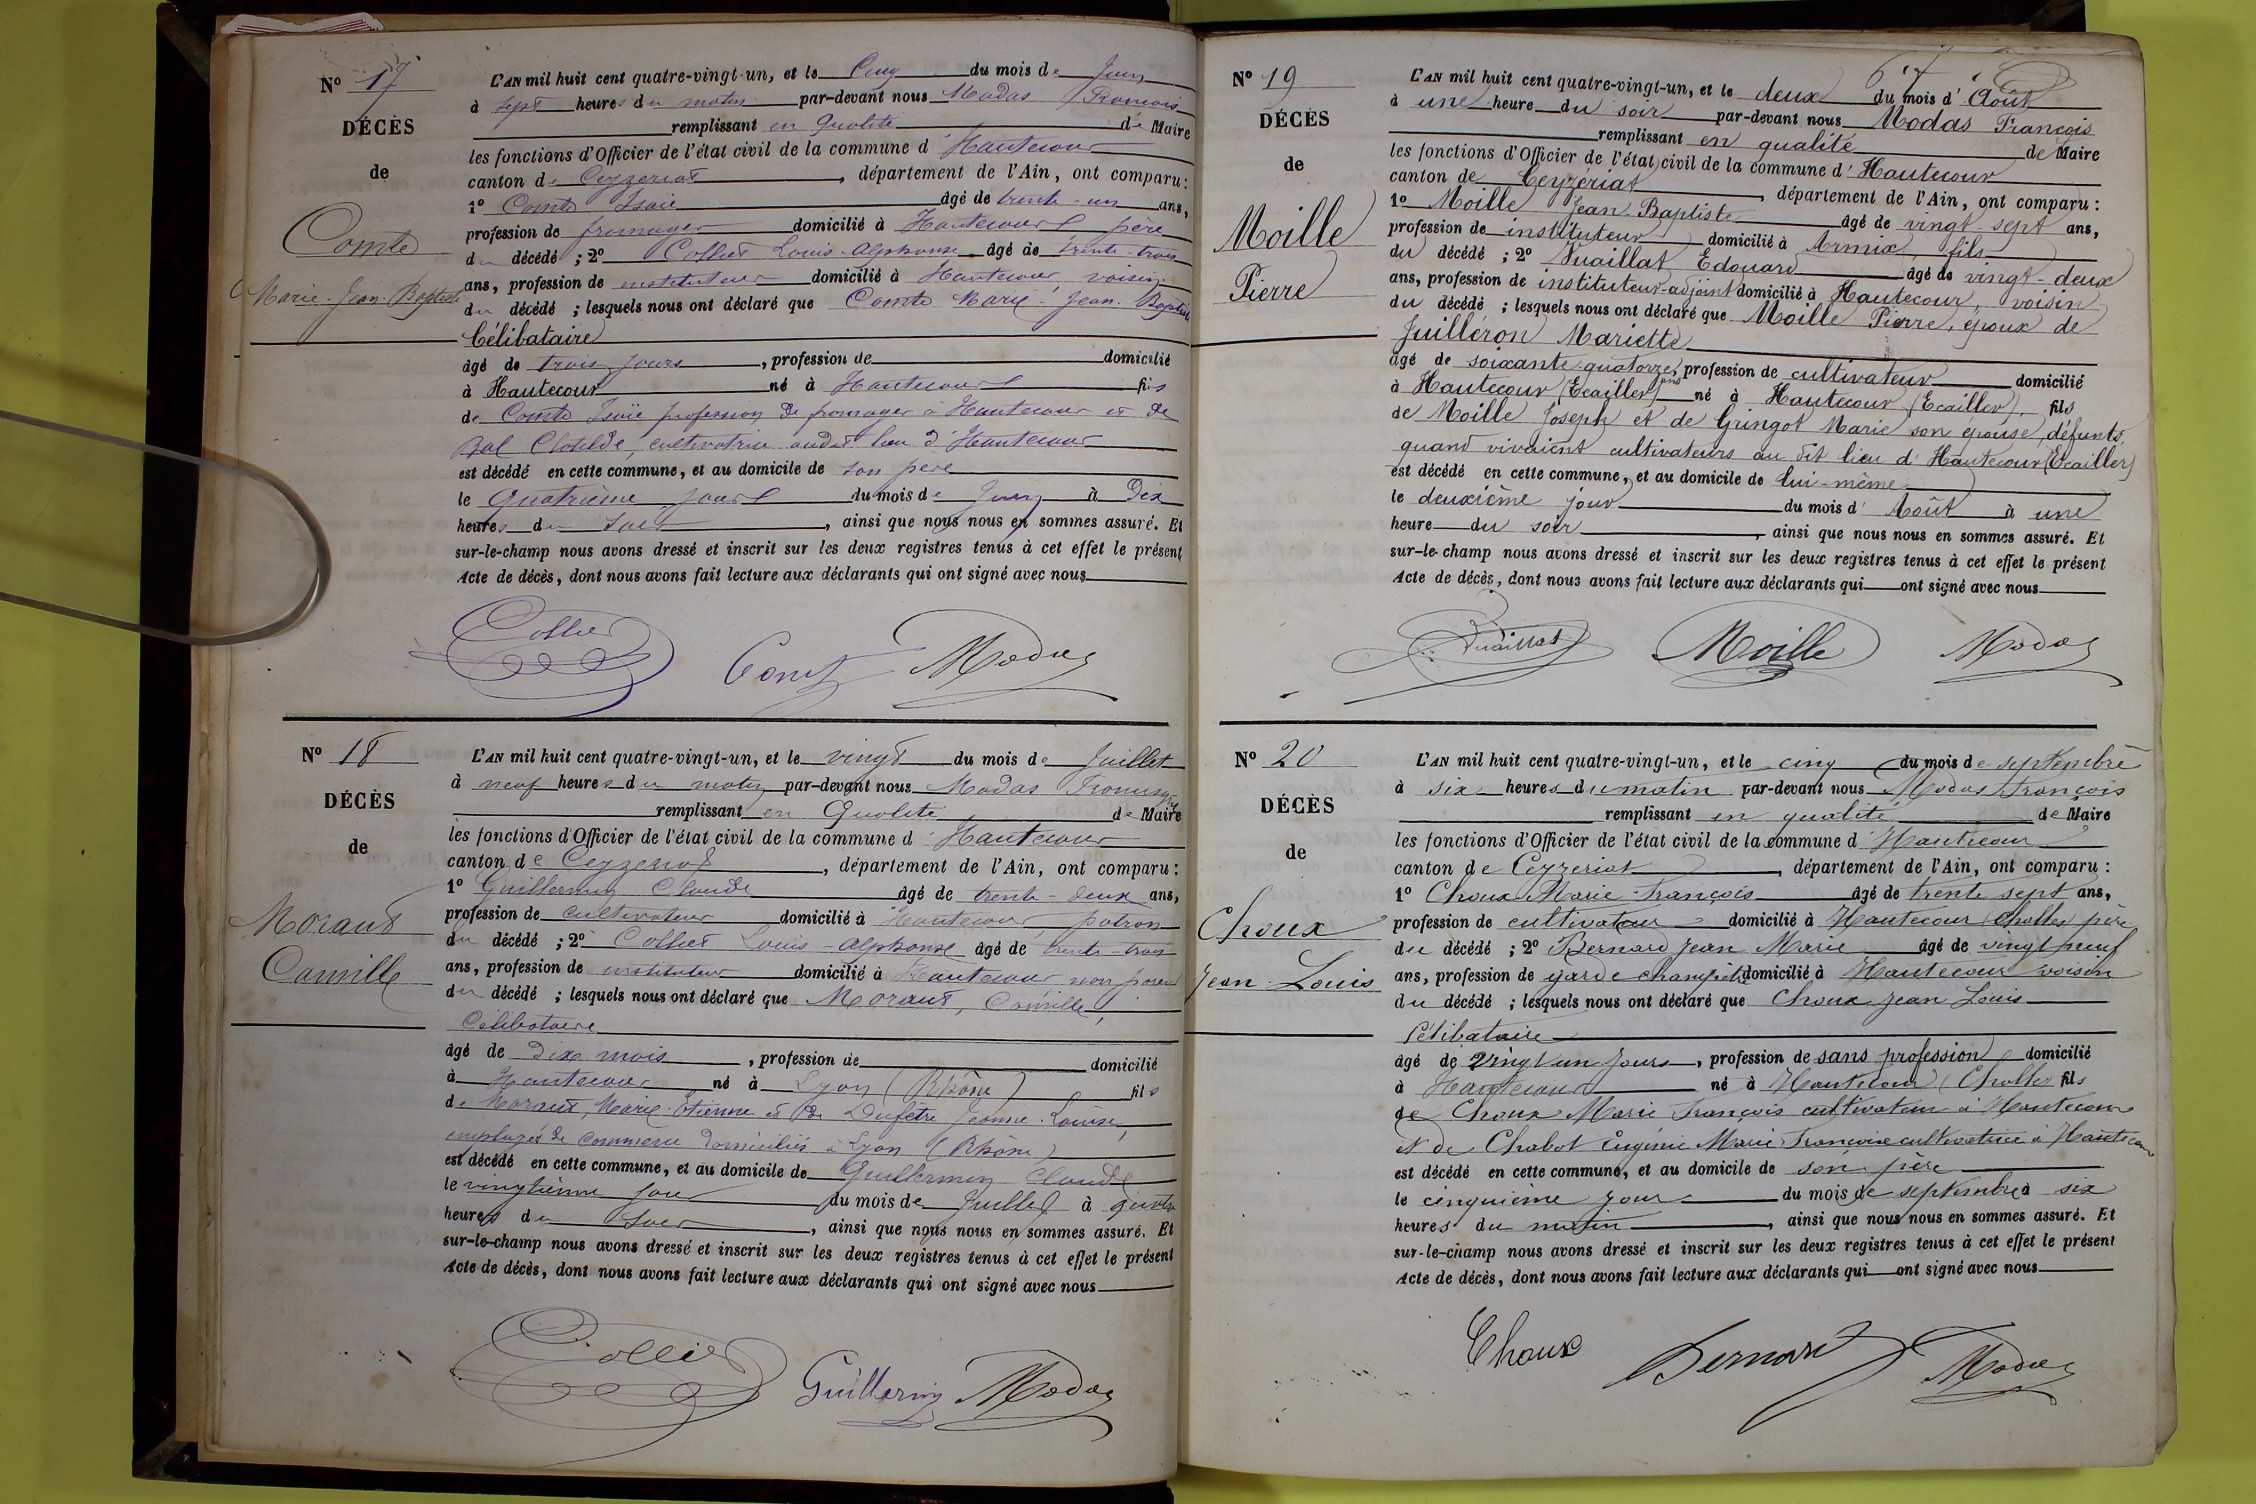 Nº 17
DÉCÈS
de
Comte
Marie-Jean-Baptiste
L'AN mil huit cent quatre-vingt-un, et le Cinq du mois de Juin
à sept heures du matin par-devant nous Modas François
remplissant en qualité de Maire
les fonctions d'Officier de l'état civil de la commune d'Hautecour
canton de Ceyzeriat, département de l'Ain, ont comparu:
1º Comte Isaïe âgé de trente-un ans,
profession de fromager domicilié à Hautecour père
du décédé; 2º Collet Louis-Alphonse âgé de trente-trois
ans, profession de instituteur domicilié à Hautecour, voisin
du décédé; lesquels nous ont déclaré que Comte Marie-Jean-Baptiste
Célibataire
âgé de trois jours, profession de domicilié
à Hautecour né à Hautecour fils
de Comte Isaïe profession de fromager à Hautecour et de
Bal Clotilde, cultivatrice audit lieu d'Hautecour
est décédé en cette commune, et au domicile de son père
le Quatrième jour du mois de Juin à Dix
heures du soir, ainsi que nous nous en sommes assuré. Et
sur-le-champ nous avons dressé et inscrit sur les deux registres tenus à cet effet le présent
Acte de décès, dont nous avons fait lecture aux déclarants qui ont signé avec nous
Collet Comte Modas
Nº 18
DÉCÈS
de
Moraut
Camille
L'AN mil huit cent quatre-vingt-un, et le vingt du mois de Juillet
à neuf heures du matin par-devant nous Modas François
remplissant en Qualité de Maire
les fonctions d'Officier de l'état civil de la commune d'Hautecour
canton de Ceyzeriat, département de l'Ain, ont comparu:
1º Guillermin Claude âgé de trente-deux ans,
profession de cultivateur domicilié à Hautecour, patron
du décédé; 2º Collet Louis-Alphonse âgé de trente-trois
ans, profession de instituteur domicilié à Hautecour non parent
du décédé; lesquels nous ont déclaré que Moraut, Camille,
Célibataire
âgé de Dix mois, profession de domicilié
à Hautecour né à Lyon (Rhône) fils
de Moraut, Marie-Etienne et de Dufêtre Jeanne-Louise,
employés de commerce domiciliés à Lyon (Rhône)
est décédé en cette commune, et au domicile de Guillermin Claude
le vingtième jour du mois de Juillet à quatre
heures du soir, ainsi que nous nous en sommes assuré. Et
sur-le-champ nous avons dressé et inscrit sur les deux registres tenus à cet effet le présent
Acte de décès, dont nous avons fait lecture aux déclarants qui ont signé avec nous
Collet Guillermin Modas
67
Nº 19
DÉCÈS
de
Moille
Pierre
L'AN mil huit cent quatre-vingt-un, et le deux du mois d'Août
à une heure du soir par-devant nous Modas François
remplissant en qualité de Maire
les fonctions d'Officier de l'état civil de la commune d'Hautecour
canton de Ceyzériat, département de l'Ain, ont comparu:
1º Moille Jean-Baptiste âgé de vingt-sept ans,
profession de instituteur domicilié à Armix, fils
du décédé; 2º Vuaillat Edouard âgé de vingt-deux
ans, profession de instituteur-adjoint domicilié à Hautecour, voisin
du décédé; lesquels nous ont déclaré que Moille Pierre, époux de
Juilléron Mariette
âgé de soixante-quatorze ans, profession de cultivateur domicilié
à Hautecour (Ecailler) né à Hautecour (Ecailler), fils
de Moille Joseph et de Gringot Marie son épouse, défunts,
quand vivaient cultivateurs au dit lieu d'Hautecour (Ecailler)
est décédé en cette commune, et au domicile de lui-même
le deuxième jour du mois d'Août à une
heure du soir, ainsi que nous nous en sommes assuré. Et
sur-le-champ nous avons dressé et inscrit sur les deux registres tenus à cet effet le présent
Acte de décès, dont nous avons fait lecture aux déclarants qui ont signé avec nous
Vuaillat Moille Modas
Nº 20
DÉCÈS
de
Choux
Jean-Louis
L'AN mil huit cent quatre-vingt-un, et le cinq du mois de septembre
à six heures du matin par-devant nous Modas François
remplissant en qualité de Maire
les fonctions d'Officier de l'état civil de la commune d'Hautecour
canton de Ceyzeriat, département de l'Ain, ont comparu:
1º Choux Marie-François âgé de trente sept ans,
profession de cultivateur domicilié à Hautecour Cholles père
du décédé; 2º Bernard Jean Marie âgé de vingt neuf
ans, profession de garde champêtre domicilié à Hautecour voisin
du décédé; lesquels nous ont déclaré que Choux Jean Louis
Célibataire
âgé de vingt un jours, profession de sans profession domicilié
à Hautecour né à Hautecour (Cholles fils
de Choux Marie François cultivateur à Hautecour
et de Chabot Eugénie Marie Françoise cultivatrice à Hautecour
est décédé en cette commune, et au domicile de son père
le cinquième jour du mois de septembre à six
heures du matin, ainsi que nous nous en sommes assuré. Et
sur-le-champ nous avons dressé et inscrit sur les deux registres tenus à cet effet le présent
Acte de décès, dont nous avons fait lecture aux déclarants qui ont signé avec nous
Choux Bernard Modas